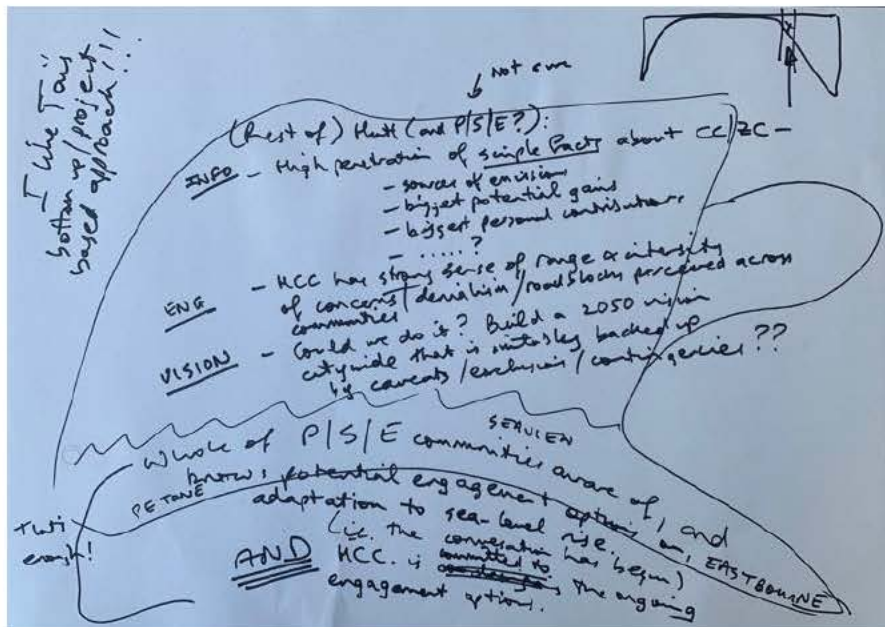 I like this
bottom up/project
based approach!!!
not sure
(Rest of) Hutt (and P/S/E?):
INFO - High penetration of simple facts about CC/ZC -
- sources of emissions
- biggest potential gains
- biggest personal contributions
- .....?
ENG - HCC has strong sense of range & intensity
of concerns/denialism/roadblocks perceived across
communities
VISION - Could we do it? Build a 2050 vision
citywide that is suitably backed up
by caveats/exclusions/contingencies??
SEAVIEW
Whole of P/S/E communities aware of, and
potential engagement options on,
PETONE
adaptation to sea-level rise.
EASTBOURNE
(ie. the conversation has begun)
That's
enough!
AND HCC is committed to
the ongoing
engagement options.